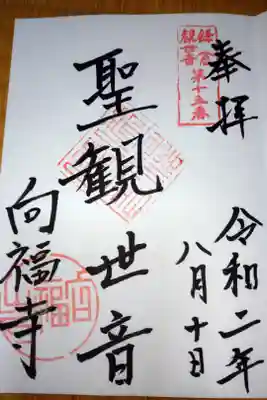 奉拝
鎌倉
観世音
第十五番
令和二年
八月十日
聖観世音
向福寺